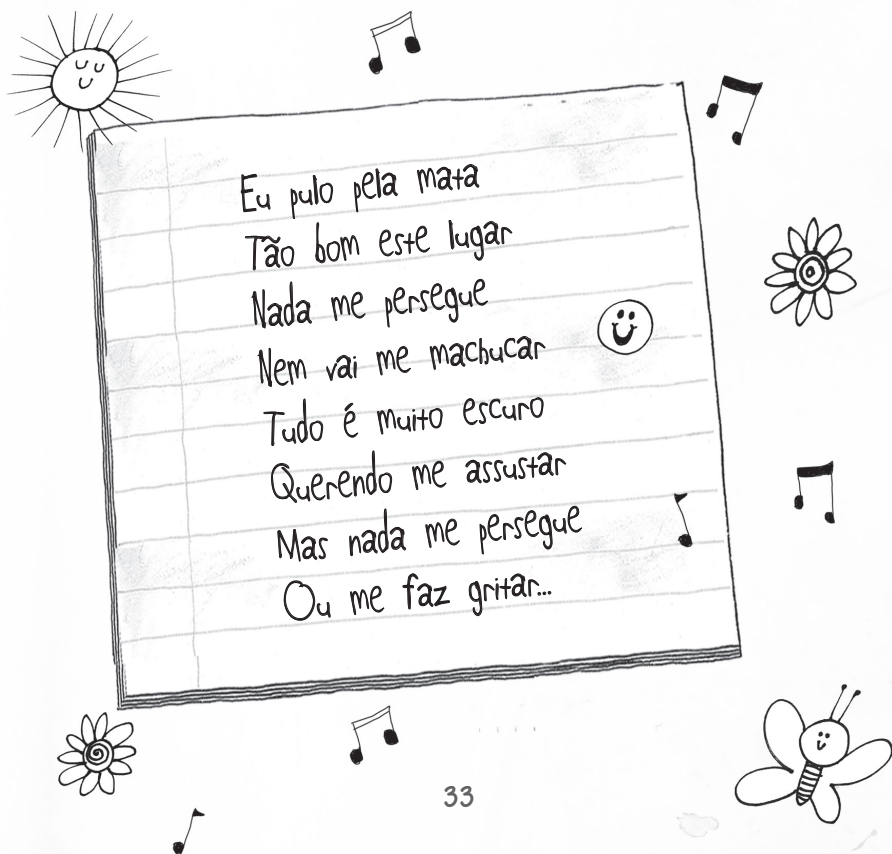 Eu pulo pela mata
Tão bom este lugar
Nada me persegue
Nem vai me machucar
Tudo é muito escuro
Querendo me assustar
Mas nada me persegue
Ou me faz gritar...
33